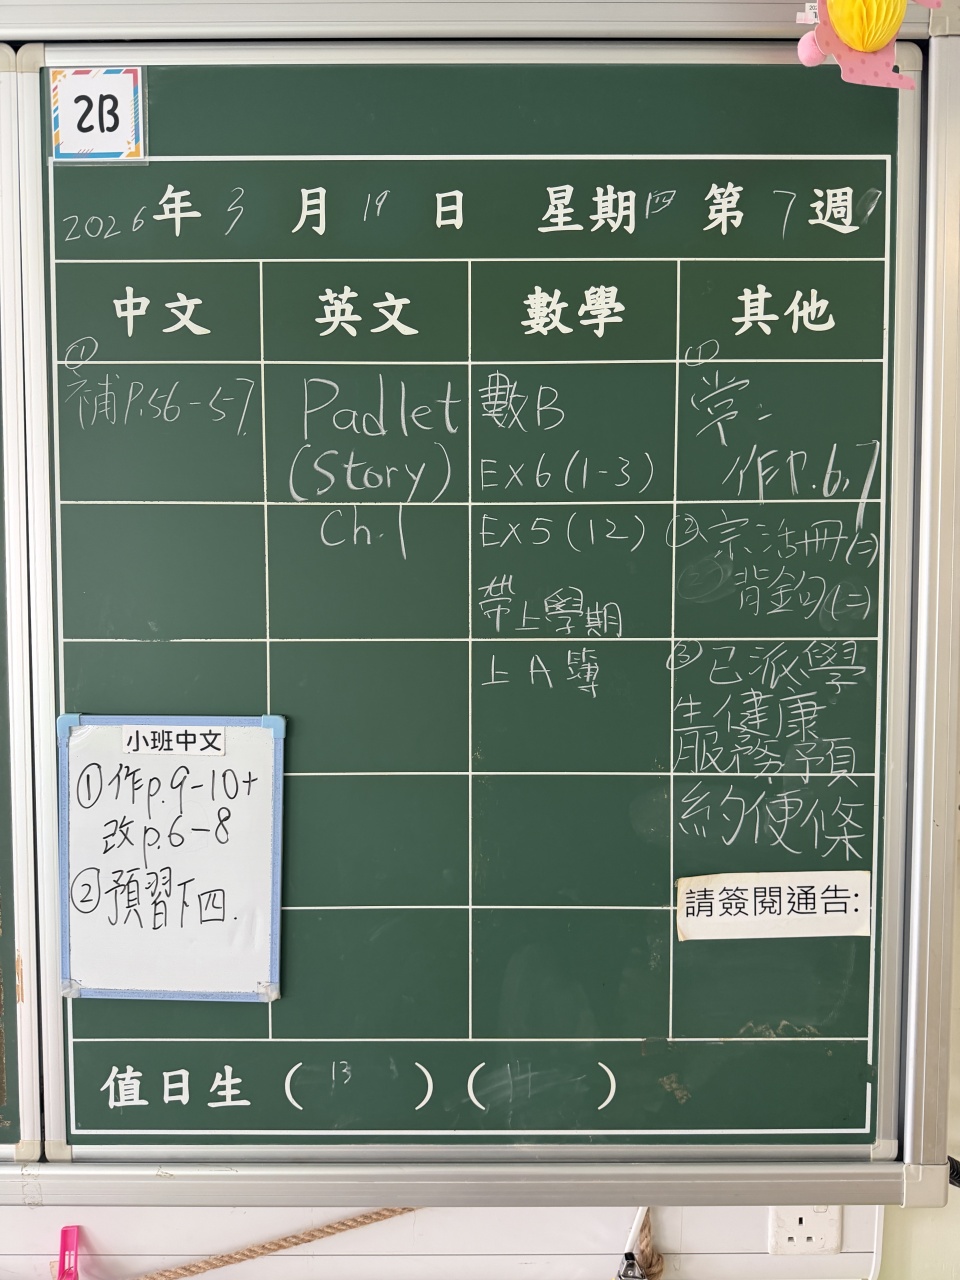 2B
2026年3月19日 星期四 第7週
中文
英文
數學
其他
①
補P.56-57
Padlet
(Story)
Ch.1
數B
EX6(1-3)
EX5(12)
帶上學期
上A簿
①
常:
作P.6,7
②宗活冊(二)
背金句(二)
③已派學
生健康
服務預
約便條
請簽閱通告:
小班中文
①作p.9-10+
改p.6-8
②預習下四.
值日生(13)(14)